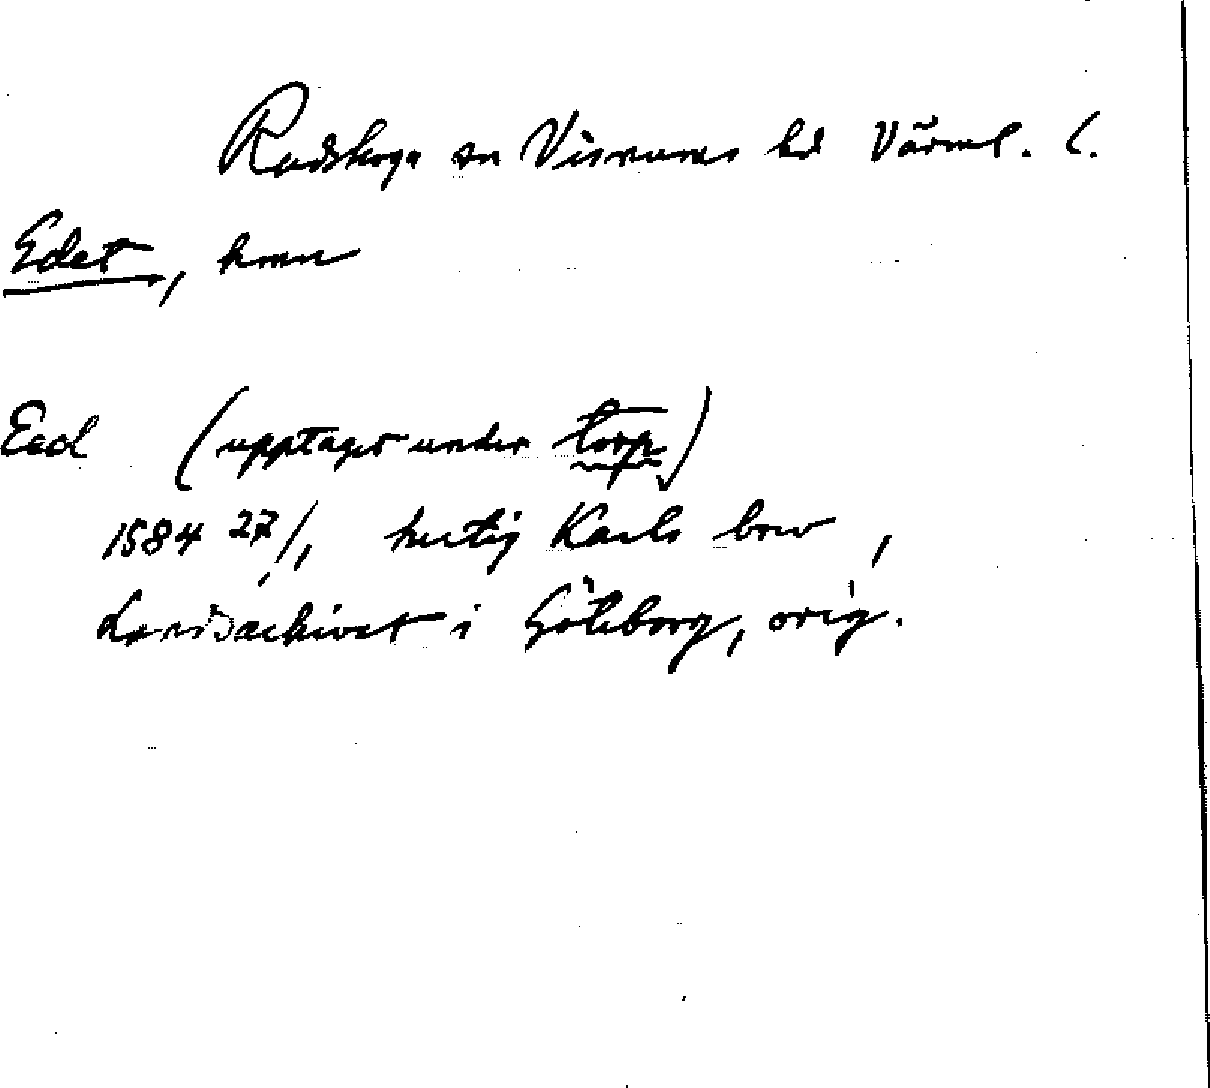 Rudskoga sn Visnums hd Värml. l.
Edet, hmn
Eed (upptages under torp)
1584 27/1, hertig Karls brev,
Landsarkivet i Göteborg, orig.